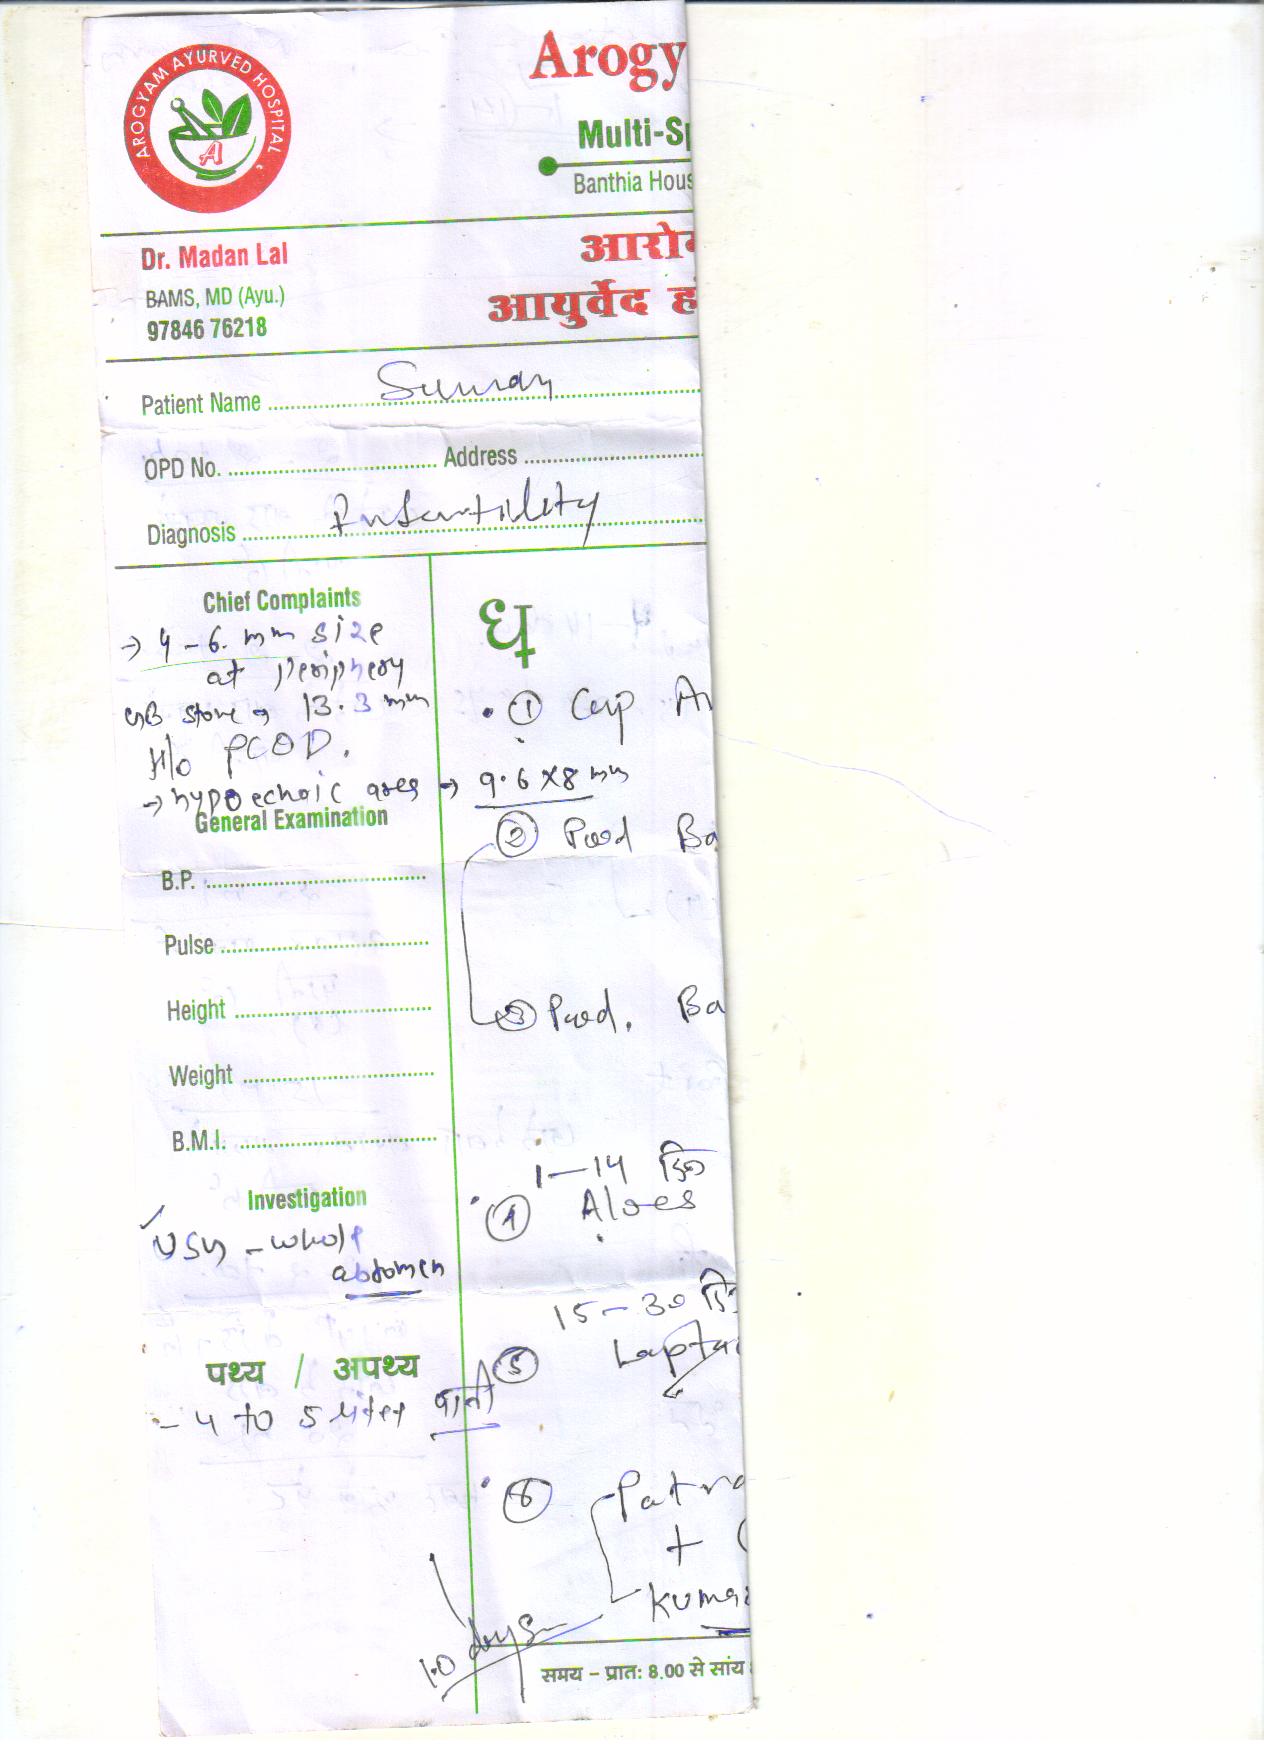 AROGYAM AYURVED HOSPITAL
A
Arogy
Multi-Sp
Banthia Hous
Dr. Madan Lal
BAMS, MD (Ayu.)
97846 76218
आरो
आयुर्वेद हॉ
Patient Name Suman
OPD No. Address
Diagnosis Infertility
Chief Complaints
→ 4-6. mm size
at periphery
GB stone → 13.3 mm
H/o PCOD.
→ hypoechoic area → 9.6x8 mm
General Examination
B.P.
Pulse
Height
Weight
B.M.I.
Investigation
USG - whole
abdomen
पथ्य / अपथ्य
- 4 to 5 लीटर पानी
① Cap A
② Powd Ba
③ Powd. Ba
1-14 दिन
④ Aloes
15-30 दि
⑤
⑥ Patra
+
Kuma
10 days
समय - प्रात: 8.00 से सांय